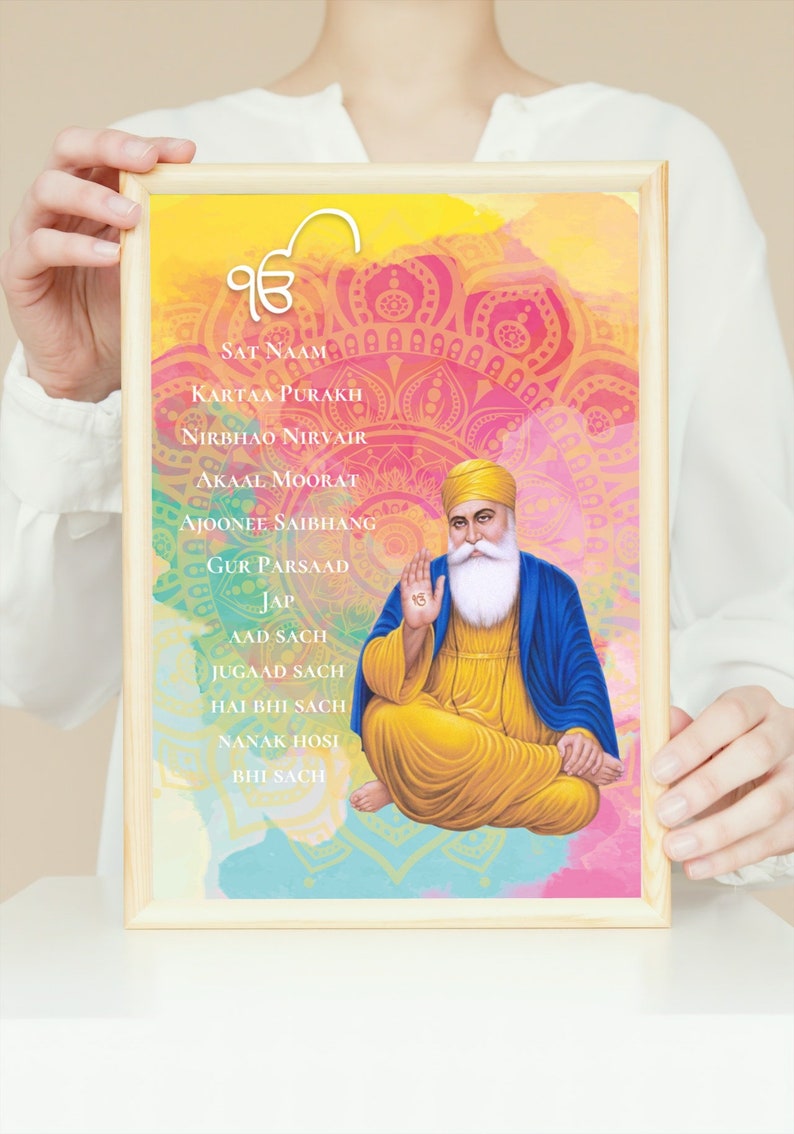 ੴ
Sat Naam
Kartaa Purakh
Nirbhao Nirvair
Akaal Moorat
Ajoonee Saibhang
Gur Parsaad
Jap
aad sach
jugaad sach
hai bhi sach
nanak hosi
bhi sach
ੴ